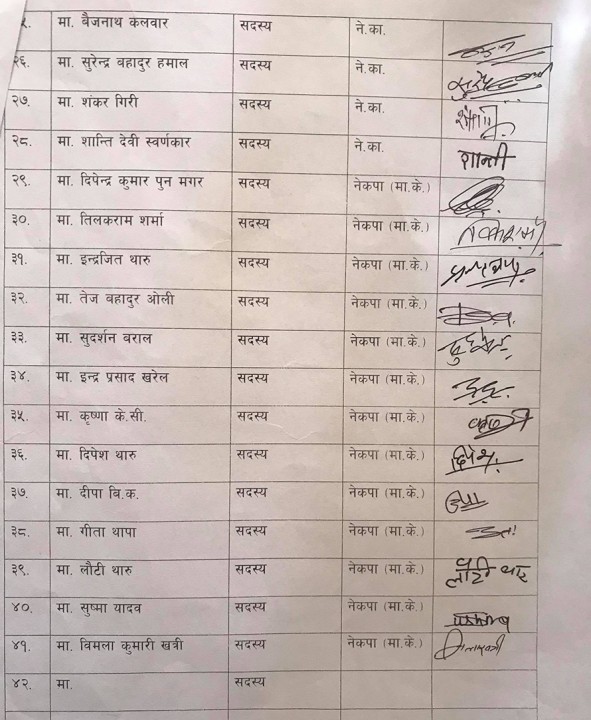 ५. मा. बैजनाथ कलवार सदस्य ने.का.
२६. मा. सुरेन्द्र बहादुर हमाल सदस्य ने.का.
२७. मा. शंकर गिरी सदस्य ने.का.
२८. मा. शान्ति देवी स्वर्णकार सदस्य ने.का. शान्ती
२९. मा. दिपेन्द्र कुमार पुन मगर सदस्य नेकपा (मा.के.)
३०. मा. तिलकराम शर्मा सदस्य नेकपा (मा.के.)
३१. मा. इन्द्रजित थारु सदस्य नेकपा (मा.के.)
३२. मा. तेज बहादुर ओली सदस्य नेकपा (मा.के.)
३३. मा. सुदर्शन बराल सदस्य नेकपा (मा.के.)
३४. मा. इन्द्र प्रसाद खरेल सदस्य नेकपा (मा.के.)
३५. मा. कृष्णा के.सी. सदस्य नेकपा (मा.के.)
३६. मा. दिपेश थारु सदस्य नेकपा (मा.के.)
३७. मा. दीपा बि.क. सदस्य नेकपा (मा.के.)
३८. मा. गीता थापा सदस्य नेकपा (मा.के.)
३९. मा. लौटी थारु सदस्य नेकपा (मा.के.)
४०. मा. सुष्मा यादव सदस्य नेकपा (मा.के.)
४१. मा. विमला कुमारी खत्री सदस्य नेकपा (मा.के.)
४२. मा. सदस्य